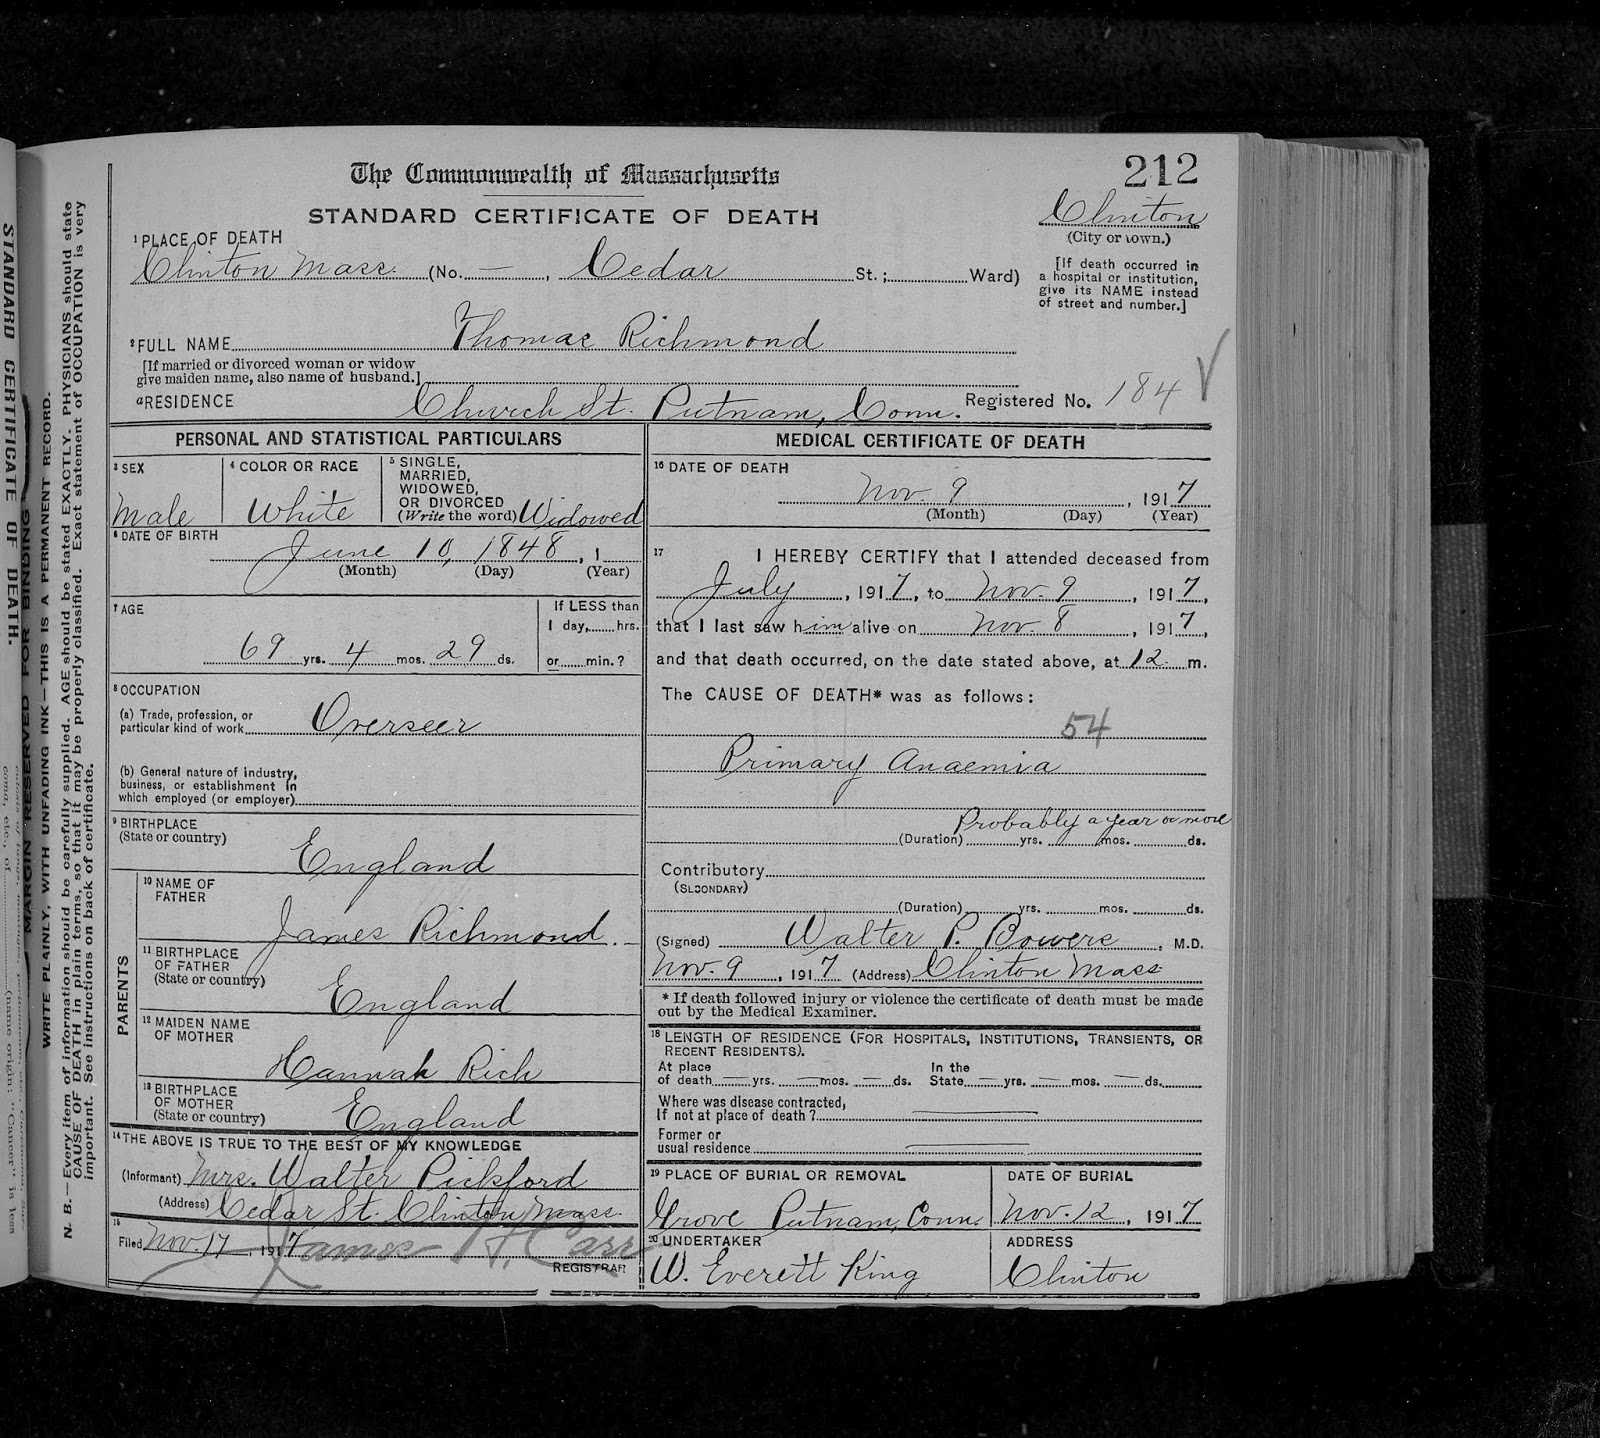 The Commonwealth of Massachusetts
212
STANDARD CERTIFICATE OF DEATH
Clinton
(City or town.)
1 PLACE OF DEATH
Clinton Mass. (No. — , Cedar St.; Ward)
[If death occurred in
a hospital or institution,
give its NAME instead
of street and number.]
2 FULL NAME Thomas Richmond
[If married or divorced woman or widow
give maiden name, also name of husband.]
a RESIDENCE Church St. Putnam, Conn. Registered No. 184 √
PERSONAL AND STATISTICAL PARTICULARS
3 SEX
Male
4 COLOR OR RACE
White
5 SINGLE,
MARRIED,
WIDOWED,
OR DIVORCED
(Write the word) Widowed
6 DATE OF BIRTH
June 10, 1848, 1
(Month) (Day) (Year)
7 AGE
69 yrs. 4 mos. 29 ds.
If LESS than
1 day, hrs.
or min.?
8 OCCUPATION
(a) Trade, profession, or
particular kind of work Overseer
(b) General nature of industry,
business, or establishment in
which employed (or employer)
9 BIRTHPLACE
(State or country) England
PARENTS
10 NAME OF
FATHER
James Richmond.
11 BIRTHPLACE
OF FATHER
(State or country)
England
12 MAIDEN NAME
OF MOTHER
Hannah Rich
13 BIRTHPLACE
OF MOTHER
(State or country) England
14 THE ABOVE IS TRUE TO THE BEST OF MY KNOWLEDGE
(Informant) Mrs. Walter Pickford
(Address) Cedar St. Clinton Mass.
15
Filed Nov. 17, 1917 James H. Carr
REGISTRAR
MEDICAL CERTIFICATE OF DEATH
16 DATE OF DEATH
Nov. 9, 1917
(Month) (Day) (Year)
17 I HEREBY CERTIFY that I attended deceased from
July, 1917, to Nov. 9, 1917,
that I last saw him alive on Nov. 8, 1917,
and that death occurred, on the date stated above, at 12 m.
The CAUSE OF DEATH* was as follows:
54
Primary Anaemia
Probably a year or more
(Duration) yrs. mos. ds.
Contributory
(SECONDARY)
(Duration) yrs. mos. ds.
(Signed) Walter P. Bowers, M.D.
Nov. 9, 1917 (Address) Clinton Mass
* If death followed injury or violence the certificate of death must be made
out by the Medical Examiner.
18 LENGTH OF RESIDENCE (FOR HOSPITALS, INSTITUTIONS, TRANSIENTS, OR
RECENT RESIDENTS).
At place
of death — yrs. — mos. — ds.
In the
State — yrs. — mos. — ds.
Where was disease contracted,
If not at place of death?
Former or
usual residence
19 PLACE OF BURIAL OR REMOVAL
Grove Putnam, Conn.
DATE OF BURIAL
Nov. 12, 1917
20 UNDERTAKER
W. Everett King
ADDRESS
Clinton
N. B.—Every item of information should be carefully supplied. AGE should be stated EXACTLY. PHYSICIANS should state
CAUSE OF DEATH in plain terms, so that it may be properly classified. Exact statement of OCCUPATION is very
important. See instructions on back of certificate.
WRITE PLAINLY, WITH UNFADING INK—THIS IS A PERMANENT RECORD.
MARGIN RESERVED FOR BINDING
STANDARD CERTIFICATE OF DEATH.